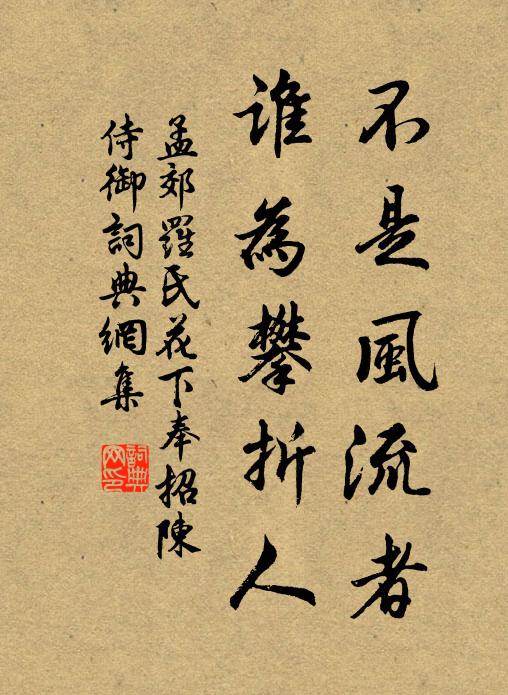 不是風流者
誰為攀折人
孟郊羅氏花下奉招陳
侍御詞典網集
詞典
网印